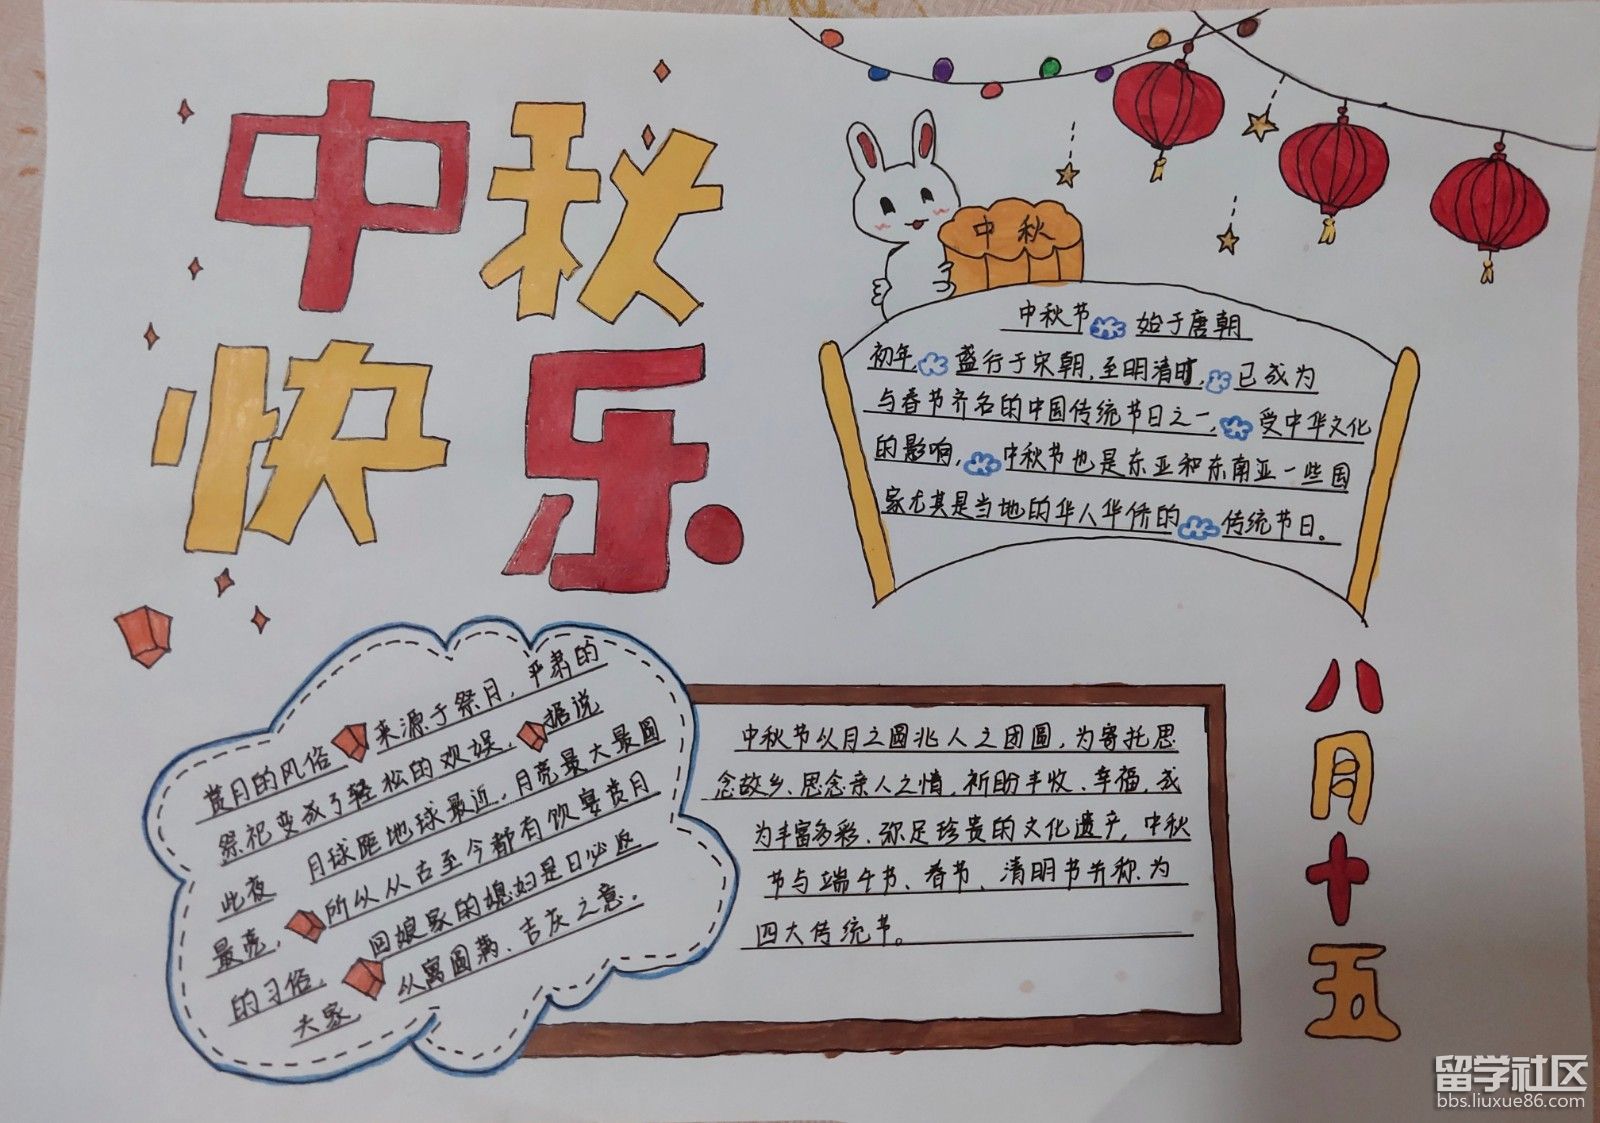 中秋
快乐
中秋
中秋节 始于唐朝
初年, 盛行于宋朝,至明清时, 已成为
与春节齐名的中国传统节日之一, 受中华文化
的影响, 中秋节也是东亚和东南亚一些国
家尤其是当地的华人华侨的 传统节日。
赏月的风俗 来源于祭月,严肃的
祭祀变成了轻松的欢娱, 据说
此夜 月球距地球最近,月亮最大最圆
最亮, 所以从古至今都有饮宴赏月
的习俗, 回娘家的媳妇是日必返
夫家, 以寓圆满、吉庆之意.
中秋节以月之圆兆人之团圆,为寄托思
念故乡、思念亲人之情,祈盼丰收、幸福,成
为丰富多彩、弥足珍贵的文化遗产,中秋
节与端午节、春节、清明节并称为
四大传统节。
八月十五
留学社区
bbs.liuxue86.com